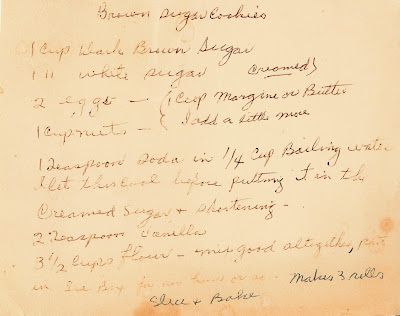 Brown Sugar Cookies
1 Cup Dark Brown Sugar
1 " white sugar Creamed }
2 eggs — { 1 Cup Margine or Butter
1 Cup nuts — { I add a little more
1 Teaspoon Soda in 1/4 Cup Boiling water
I let this Cool before putting it in the
Creamed Sugar & Shortening —
2 Teaspoon Vanilla
3 1/2 Cups flour — mix good altogether, put
in Ice Box for an hour or so. Makes 3 rolls
Slice & Bake